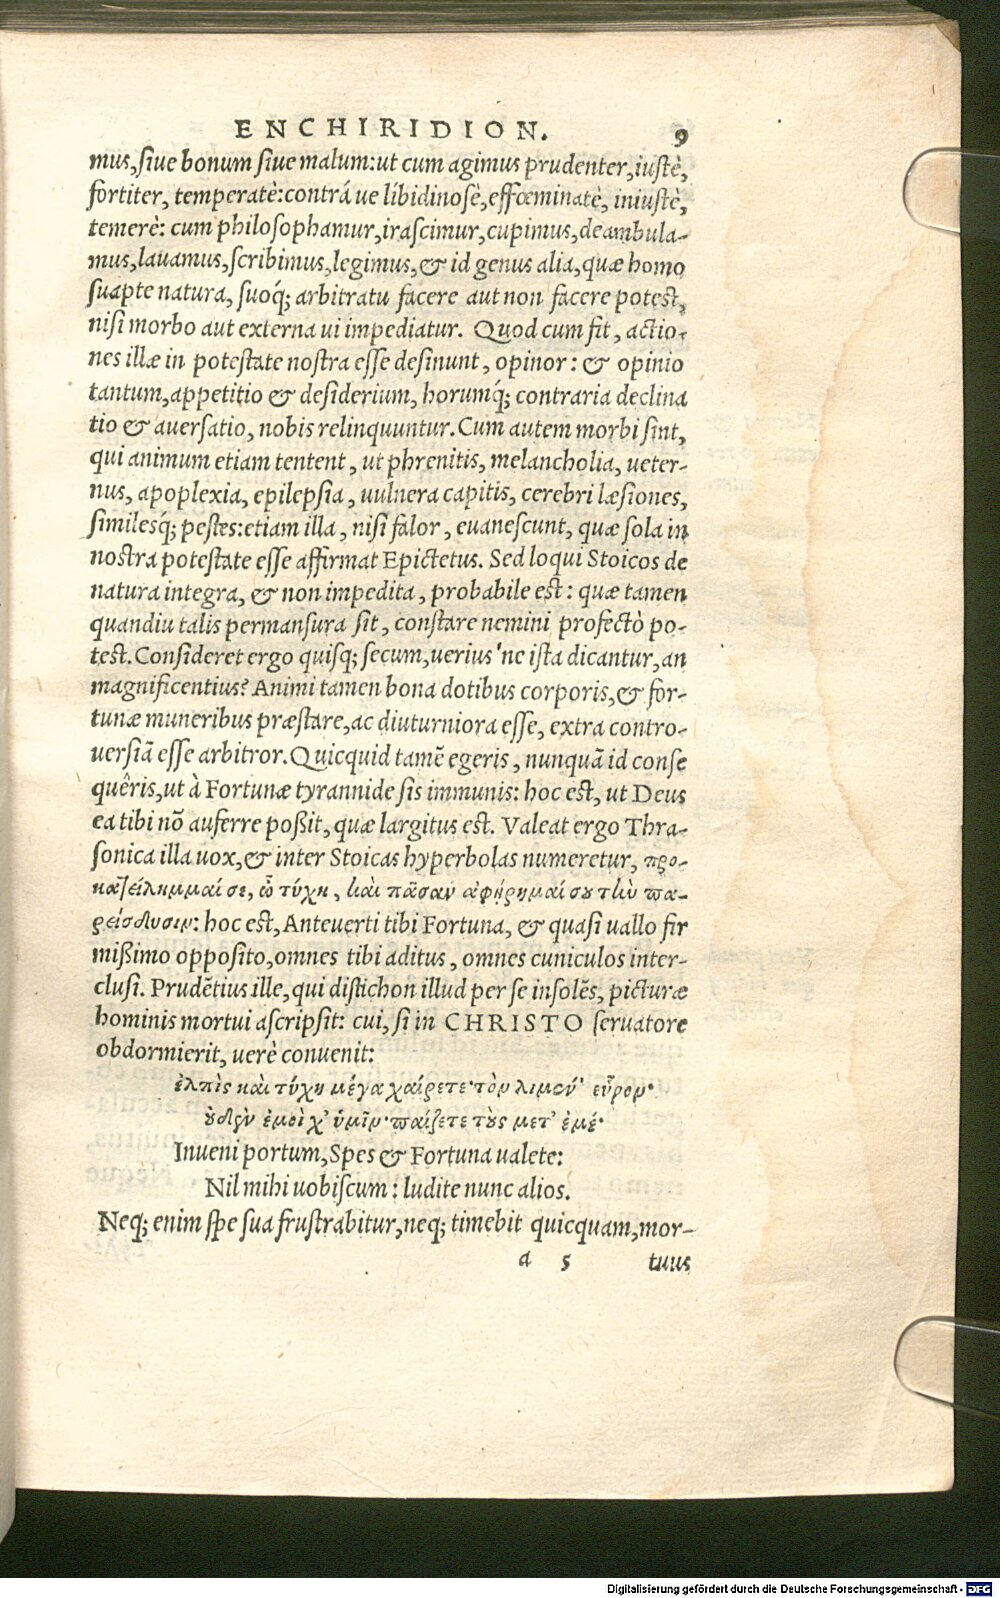 ENCHIRIDION. 9
mus, siue bonum siue malum: ut cum agimus prudenter, iustè,
fortiter, temperatè: contrá ue libidinosè, effœminatè, iniustè,
temerè: cum philosophamur, irascimur, cupimus, deambula-
mus, lauamus, scribimus, legimus, & id genus alia, quæ homo
suapte natura, suoq́; arbitratu facere aut non facere potest,
nisi morbo aut externa ui impediatur. Quod cum fit, actio-
nes illæ in potestate nostra esse desinunt, opinor: & opinio
tantum, appetitio & desiderium, horumq́; contraria declina
tio & auersatio, nobis relinquuntur. Cum autem morbi sint,
qui animum etiam tentent, ut phrenitis, melancholia, ueter-
nus, apoplexia, epilepsia, uulnera capitis, cerebri læsiones,
similesq́; pestes: etiam illa, nisi falor, euanescunt, quæ sola in
nostra potestate esse affirmat Epictetus. Sed loqui Stoicos de
natura integra, & non impedita, probabile est: quæ tamen
quandiu talis permansura sit, constare nemini profectò po-
test. Consideret ergo quisq; secum, uerius'ne ista dicantur, an
magnificentius? Animi tamen bona dotibus corporis, & for-
tunæ muneribus præstare, ac diuturniora esse, extra contro-
uersiā esse arbitror. Quicquid tamē egeris, nunquā id conse
quêris, ut à Fortunæ tyrannide sis immunis: hoc est, ut Deus
ea tibi nō auferre poßit, quæ largitus est. Valeat ergo Thra-
sonica illa uox, & inter Stoicas hyperbolas numeretur, προ-
κατείλημμαί σε, ὦ τύχη, καὶ πᾶσαν ἀφῄρημαί σου τὴν πα-
ρείσδυσιν: hoc est, Anteuerti tibi Fortuna, & quasi uallo fir
mißimo opposito, omnes tibi aditus, omnes cuniculos inter-
clusi. Prudētius ille, qui distichon illud per se insolēs, picturæ
hominis mortui ascripsit: cui, si in CHRISTO seruatore
obdormierit, uerè conuenit:
ἐλπὶς καὶ τύχη μέγα χαίρετε· τὸν λιμέν' εὗρον·
οὐδὲν ἐμοὶ χ' ὑμῖν· παίζετε τοὺς μετ' ἐμέ·
Inueni portum, Spes & Fortuna ualete:
Nil mihi uobiscum: ludite nunc alios.
Neq; enim spe sua frustrabitur, neq; timebit quicquam, mor-
a 5 tuus
Digitalisierung gefördert durch die Deutsche Forschungsgemeinschaft - DFG